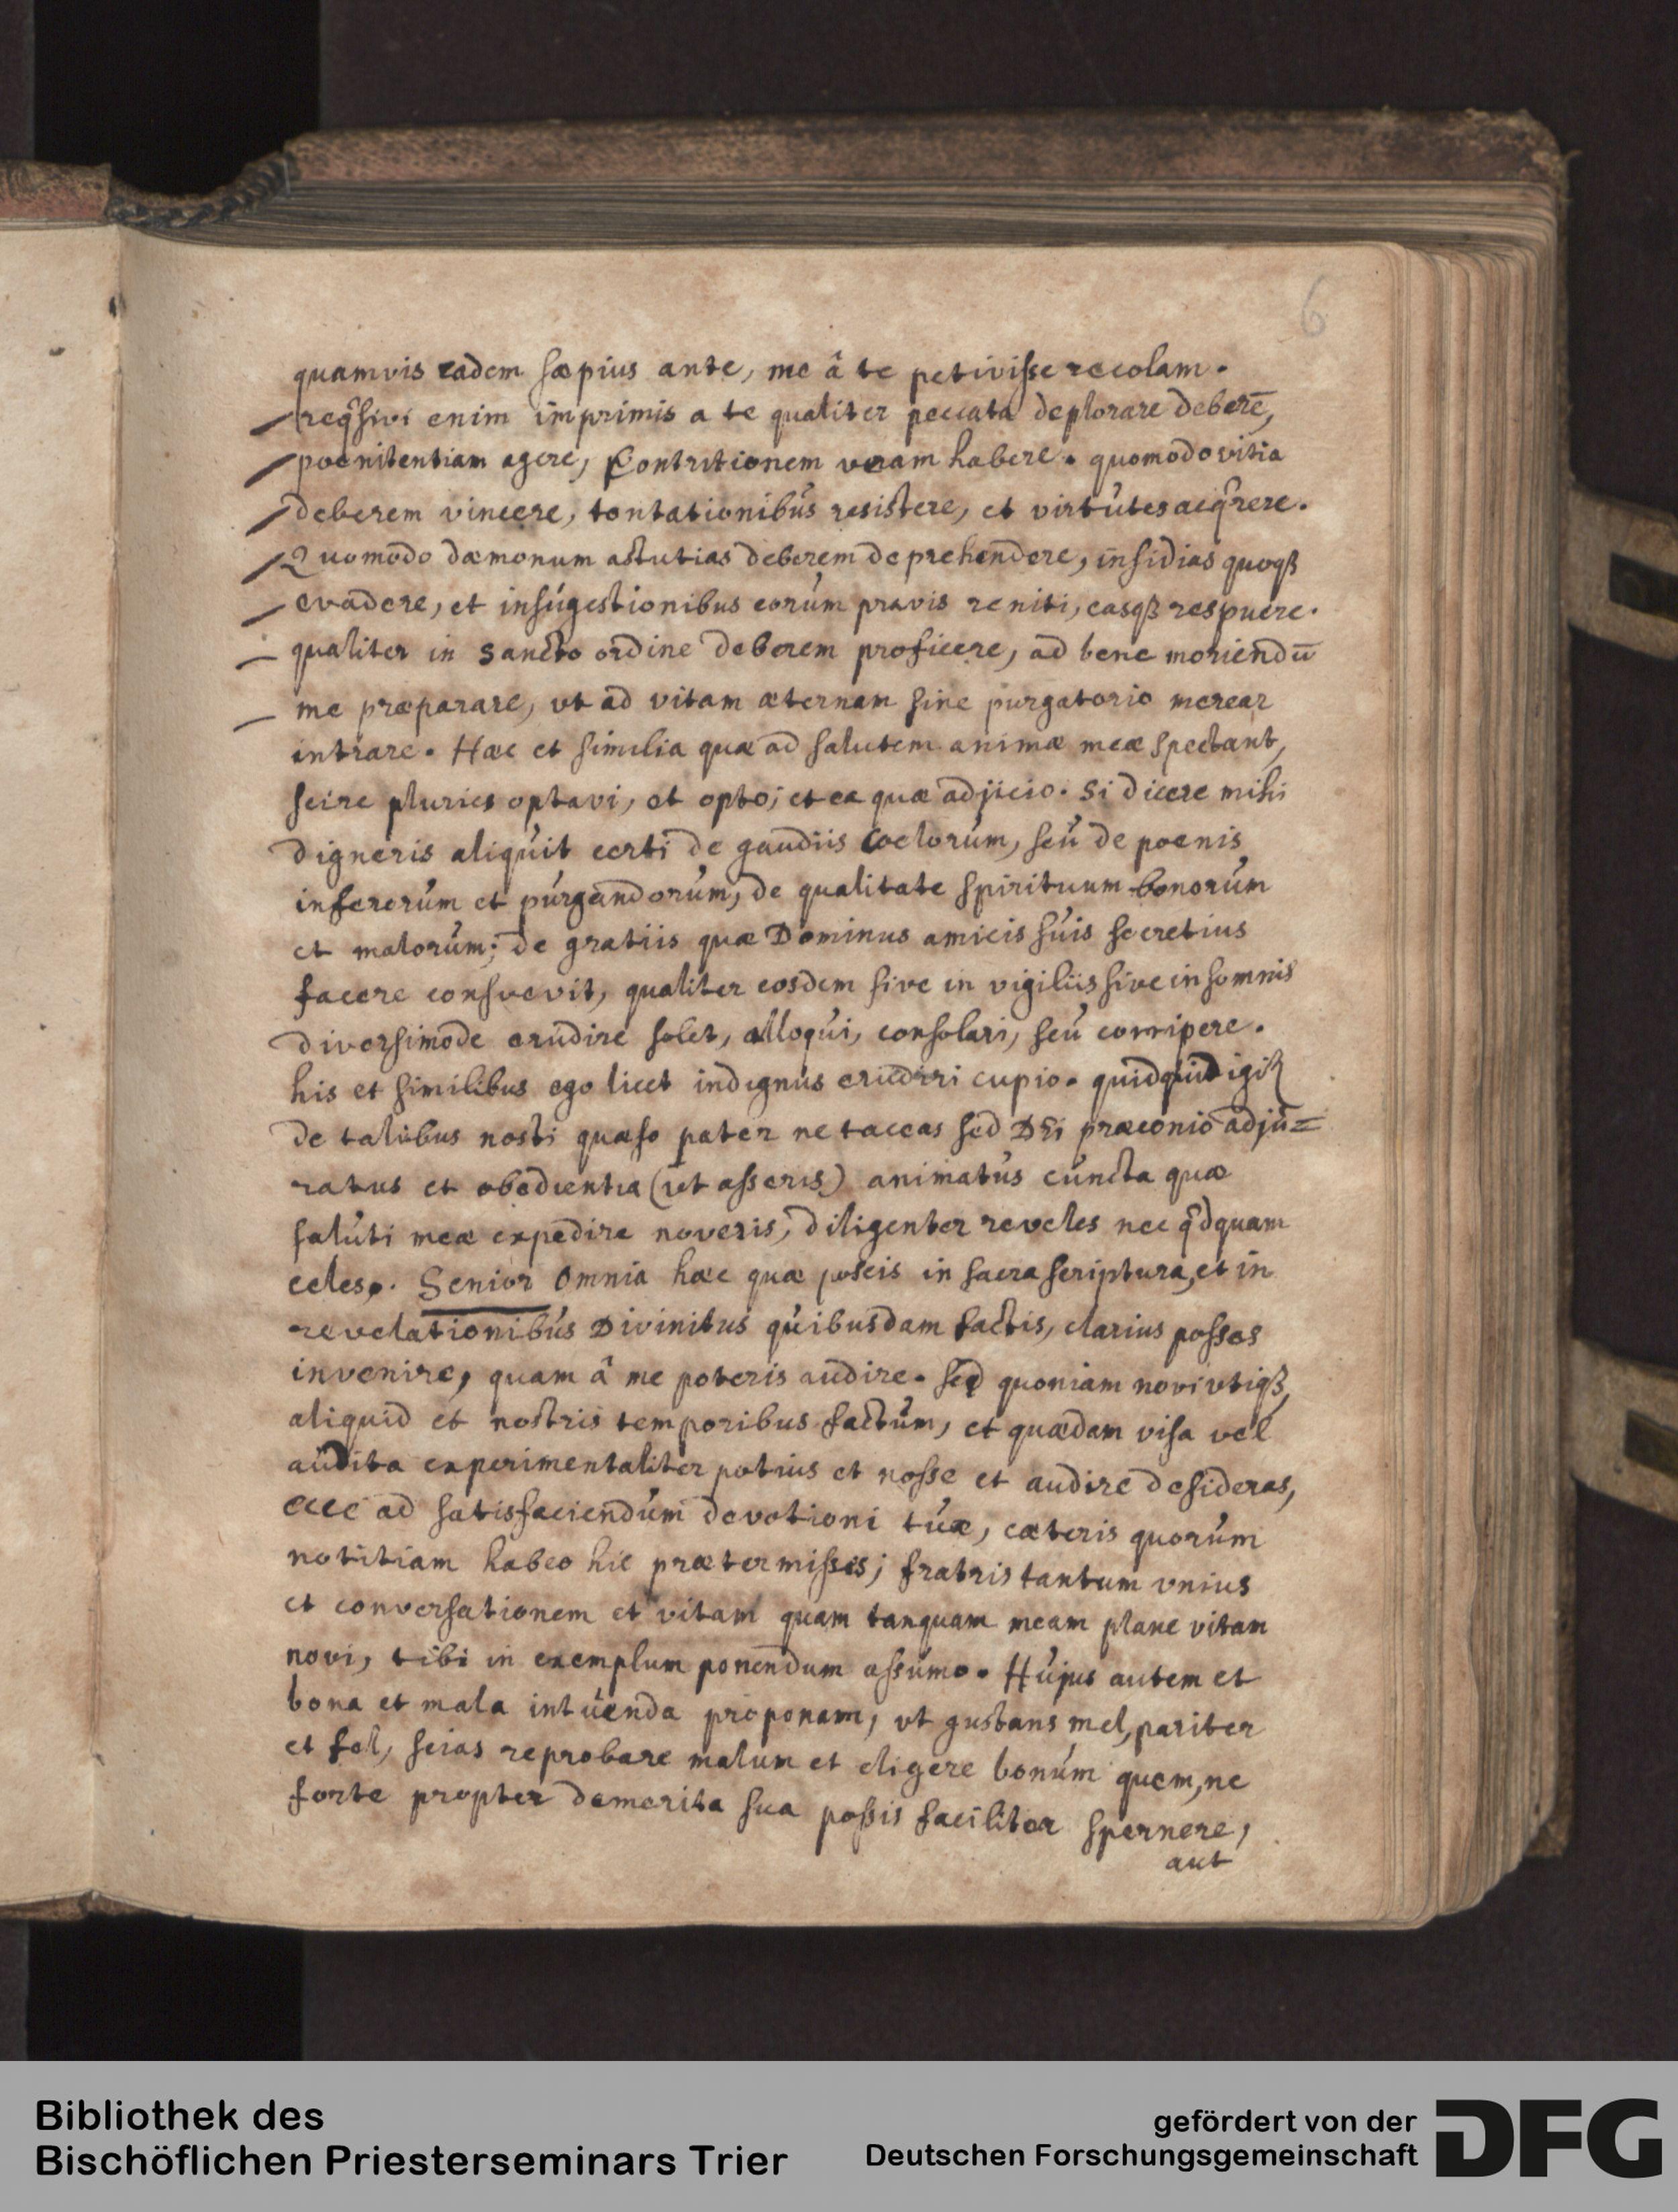 6
quamvis eadem sæpius ante, me â te petivisse recolam.
reqͥsivi enim imprimis a te qualiter peccata deplorare deberē,
poenitentiam agere, Contritionem veram habere. quomodo vitia
deberem vincere, tentationibus resistere, et virtutes acqͥrere.
Quomodo dæmonum astutias deberem deprehendere, insidias quoqß
evadere, et insugestionibus eorum pravis reniti, easqß respuere.
qualiter in sancto ordine deberem proficere, ad bene moriendū
me præparare, vt ad vitam æternam sine purgatorio merear
intrare. Hæc et similia quæ ad salutem animæ meæ spectant,
scire pluries optavi, et opto; et ea quæ adjicio. Si dicere mihi
digneris aliquit certi de gaudiis Coelorum, seu de poenis
inferorum et purgandorum, de qualitate spirituum bonorum
et malorum; de gratiis quæ Dominus amicis suis secretius
facere consuevit, qualiter eosdem sive in vigiliis sive in somnis
diversimode erudire solet, alloqui, consolari, seu corripere.
his et similibus ego licet indignus erudiri cupio. quidquid igiʒ
de talibus nosti quæso pater ne taceas sed Dēi præconio adju=
ratus et obedientia (ut asseris) animatus cuncta quæ
saluti meæ expedire noveris, diligenter reveles nec qͥdquam
celes,. Senior Omnia hæc quæ poscis in sacra scriptura, et in
revelationibus Divinitus quibusdam factis, clarius posses
invenire, quam â me poteris audire. Sed quoniam novi vtiqß,
aliquid et nostris temporibus factum, et quædam visa vel
audita experimentaliter potius et nosse et audire desideras,
ecce ad satisfaciendum devotioni tuæ, cæteris quorum
notitiam habeo hic prætermissis; fratris tantum vnius
et conversationem et vitam quam tanquam meam plane vitam
novi, tibi in exemplum ponendum assumo. Hujus autem et
bona et mala intuenda proponam, vt gustans mel, pariter
et fel, scias reprobare malum et eligere bonum quem, ne
forte propter demerita sua possis faciliter spernere,
aut
Bibliothek des
Bischöflichen Priesterseminars Trier
gefördert von der
Deutschen Forschungsgemeinschaft
DFG